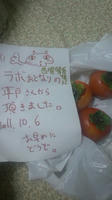 ラボおとなりの
平戸さんから
頂きました。
2011.10.6
お早めに
どうぞ。